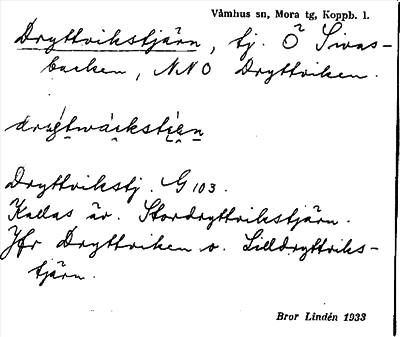 Våmhus sn, Mora tg, Koppb. l.
Dryttvikstjärn, tj. Ö Sivas-
backen, NNO Dryttviken.
Dryttvikstj. G 103.
Kallas äv. Stordryttvikstjärn.
Jfr Dryttviken o. Lilldryttviks-
tjärn.
Bror Lindén 1933